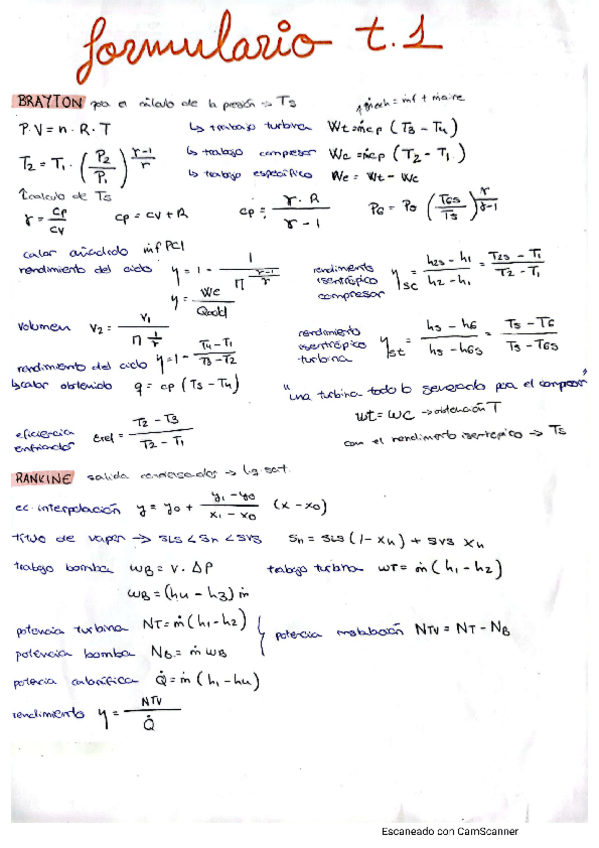 formulario t.1
BRAYTON para el cálculo de la presión → Ts ṁech = ṁf + ṁaire
P·V = n·R·T ↳ trabajo turbina Wt = ṁcp (T3 - T4)
T2 = T1 · (P2/P1)^((γ-1)/γ) ↳ trabajo compresor Wc = ṁcp (T2 - T1)
↳ trabajo específico We = Wt - Wc
↑ calculo de Ts
γ = cp/cv cp = cv + R cp = γ·R/(γ-1) P6 = P5 (T6s/T5)^(γ/(γ-1))
calor añadido ṁf PCI
rendimiento del ciclo η = 1 - 1/Π^((γ-1)/γ) rendimiento isentrópico compresor ηsc = (h2s - h1)/(h2 - h1) = (T2s - T1)/(T2 - T1)
η = We/Qadd
volumen v2 = v1/Π^(1/γ) rendimiento isentrópico turbina ηst = (h5 - h6)/(h5 - h6s) = (T5 - T6)/(T5 - T6s)
rendimiento del ciclo η = 1 - (T4 - T1)/(T3 - T2)
↳ calor obtenido q = cp (T5 - T4) "una turbina todo lo generado para el compresor"
wt = wc → obtención T
eficiencia enfriador εref = (T2 - T3)/(T2 - T1) con el rendimiento isentrópico → Ts
RANKINE salida condensador → lq sat.
ec. interpolación y = y0 + (y1 - y0)/(x1 - x0) (x - x0)
título de vapor → SLS < Sn < SVS Sn = SLS (1 - Xn) + SVS Xn
trabajo bomba wB = v·ΔP trabajo turbina wT = ṁ (h1 - h2)
wB = (h4 - h3) ṁ
potencia turbina NT = ṁ (h1 - h2)
potencia instalación NTV = NT - NB
potencia bomba NB = ṁ wB
potencia calorífica Q̇ = ṁ (h1 - h4)
rendimiento η = NTV/Q̇
Escaneado con CamScanner